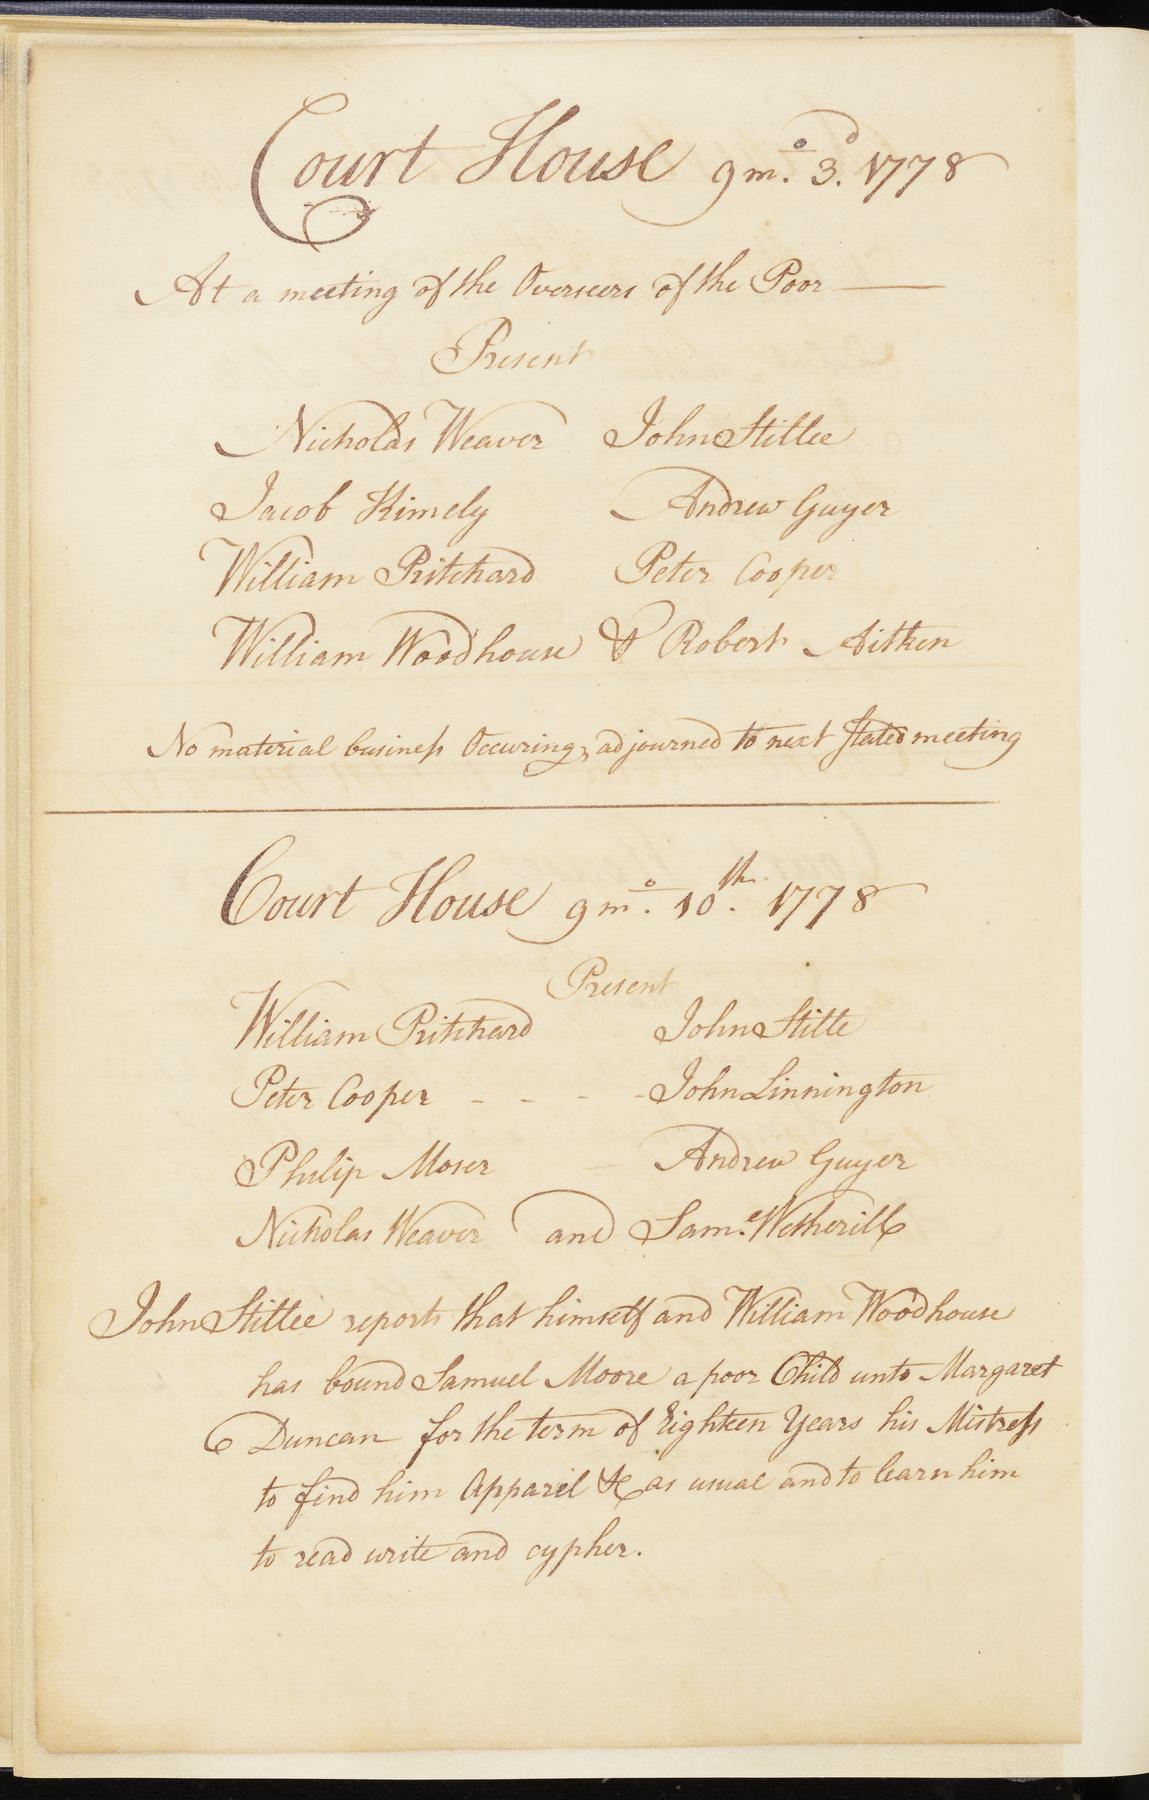 Court House 9 mo. 3d. 1778
At a meeting of the Overseers of the Poor
Present
Nicholas Weaver John Stillee
Jacob Kimely Andrew Guyer
William Pritchard Peter Cooper
William Woodhouse & Robert Aitken
No material business Occuring, adjourned to next stated meeting
Court House 9 mo. 10th. 1778
Present
William Pritchard John Stille
Peter Cooper - - - - John Linnington
Philip Moser Andrew Guyer
Nicholas Weaver and Saml. Wetherill
John Stillee reports that himself and William Woodhouse
has bound Samuel Moore a poor Child unto Margaret
Duncan for the term of Eighteen Years his Mistress
to find him Apparel &c as usual and to learn him
to read write and cypher.